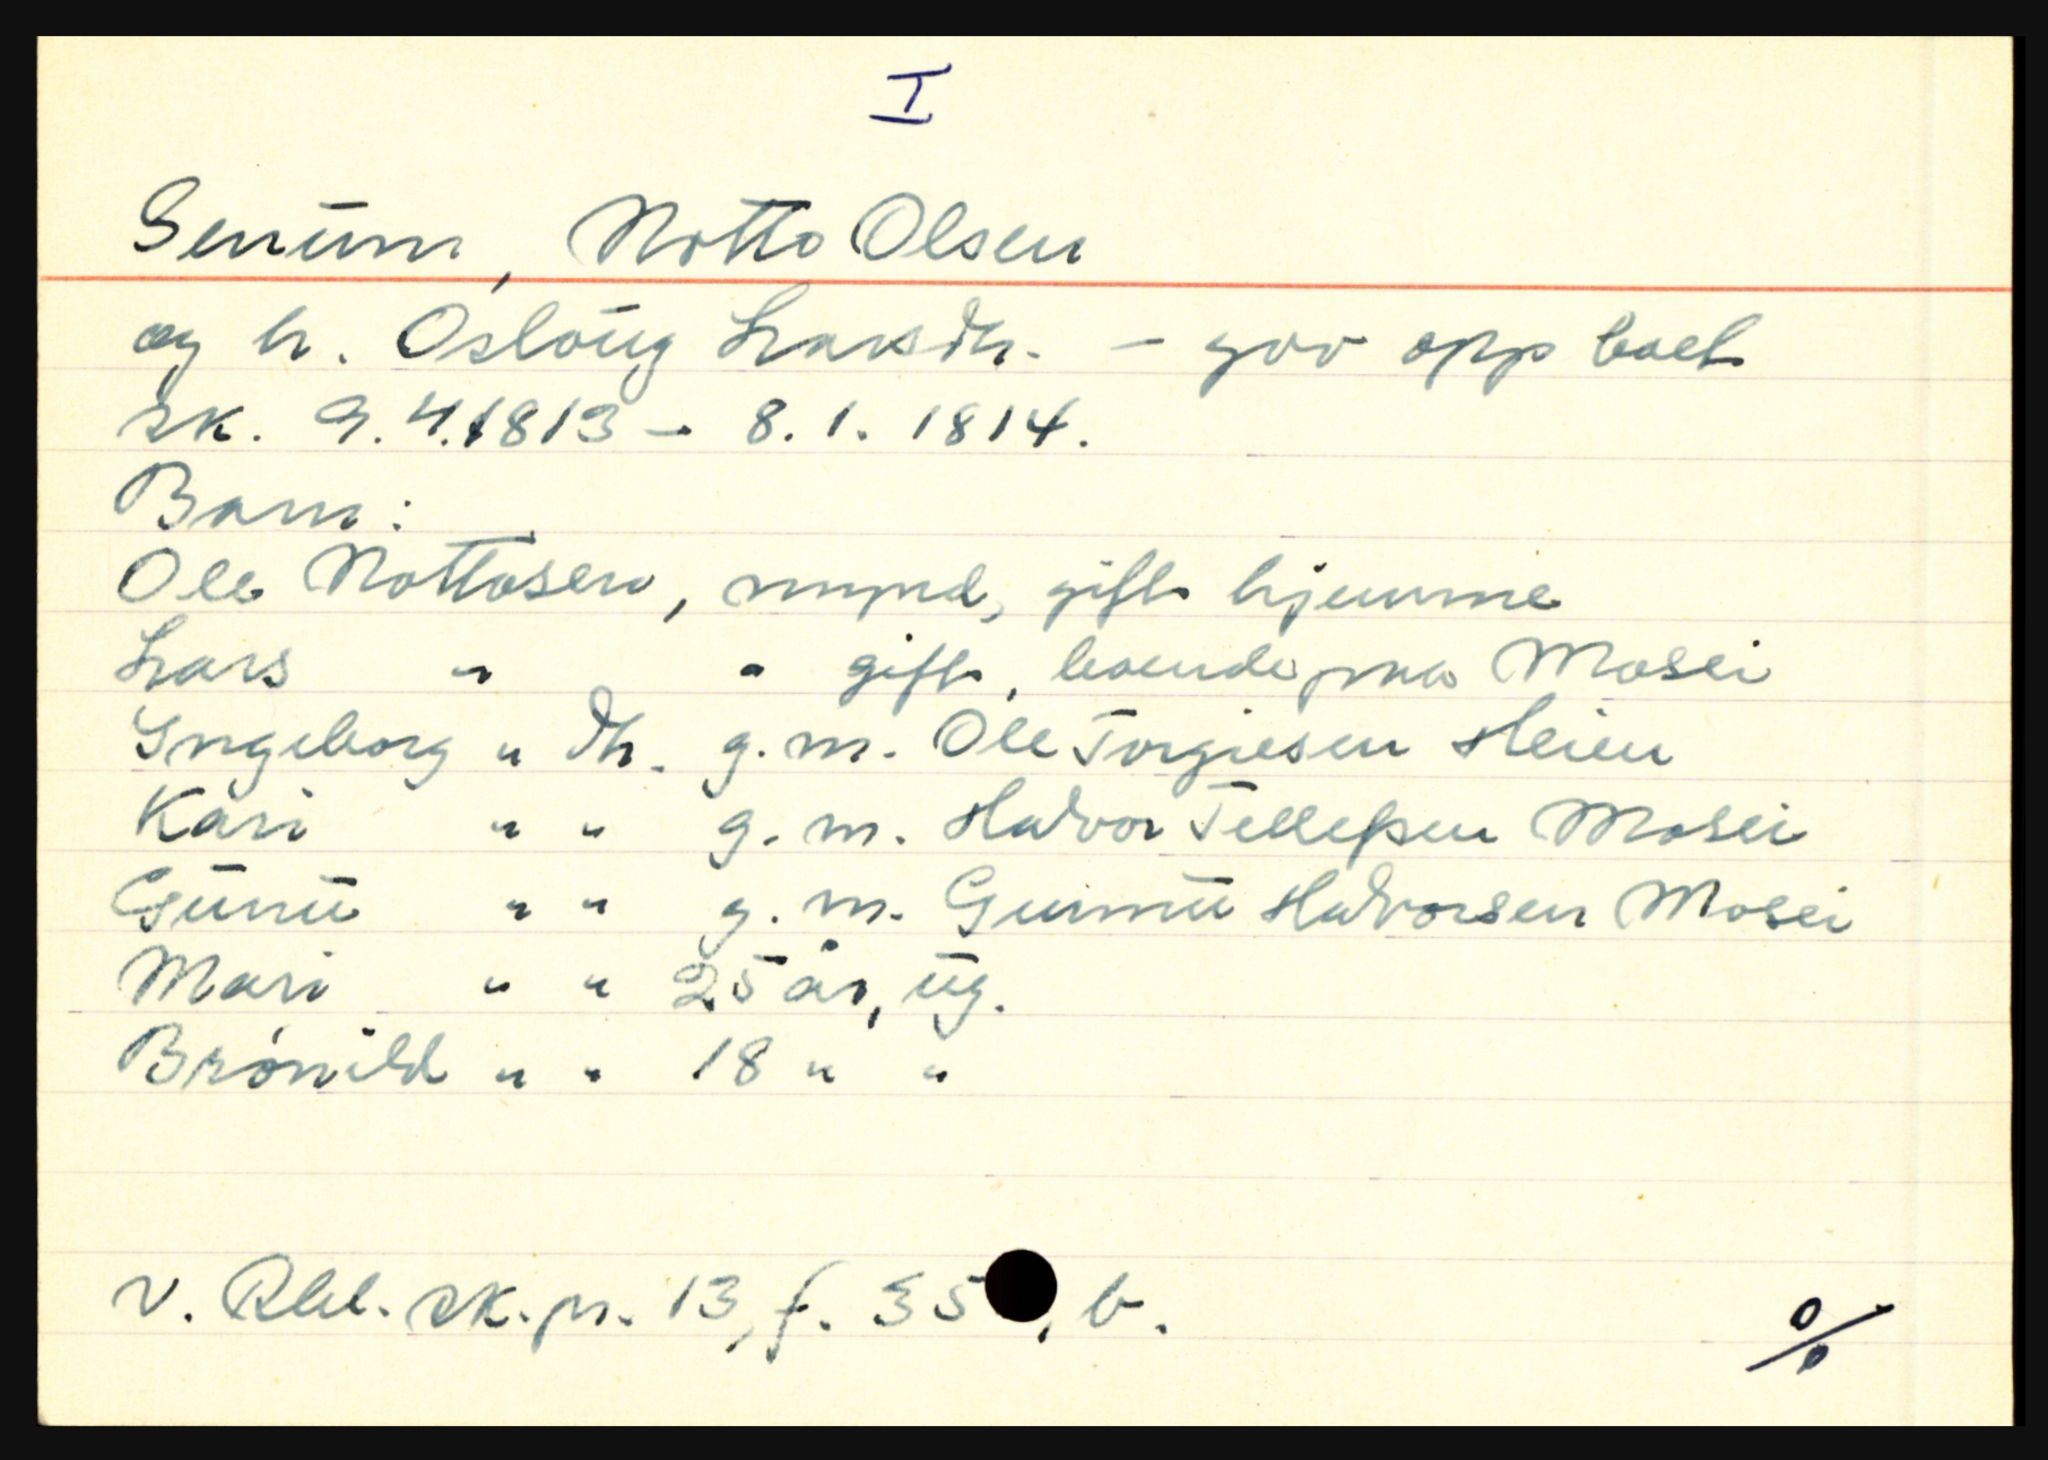 I
Senum, Notto Olsen
og h. Osloug Larsdtr. - gav opp boet
sk. 9.4.1813 - 8.1.1814.
Barn:
Ole Nottosen, mynd, gift hjemme
Lars " " gift, boende paa Mosei
Ingeborg " dtr. g.m. Ole Torgiesen Heien
Kari " " g.m. Halvor Tellefsen Mosei
Gunu " " g.m. Gunnu Halvorsen Mosei
Mari " " 25 år, ug.
Brønild " " 18 " "
v. Rbl. sk.pr. 13, f. 35 , b.
%